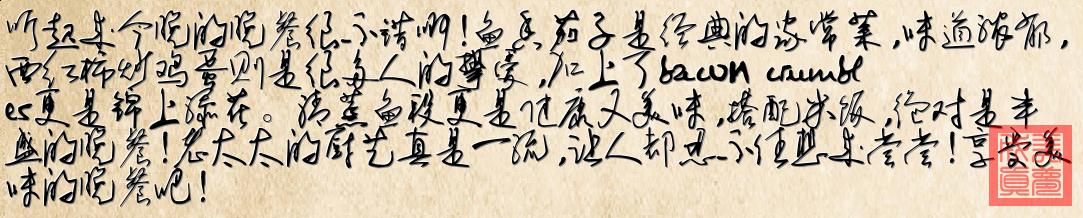 听起来今晚的晚餐很不错啊！鱼香茄子是经典的家常菜，味道浓郁，
西红柿炒鸡蛋则是很多人的挚爱，加上了bacon crumbl
es更是锦上添花。清蒸鱼段更是健康又美味，搭配米饭，绝对是丰
盛的晚餐！老太太的厨艺真是一流，让人都忍不住想来尝尝！享受美
味的晚餐吧！